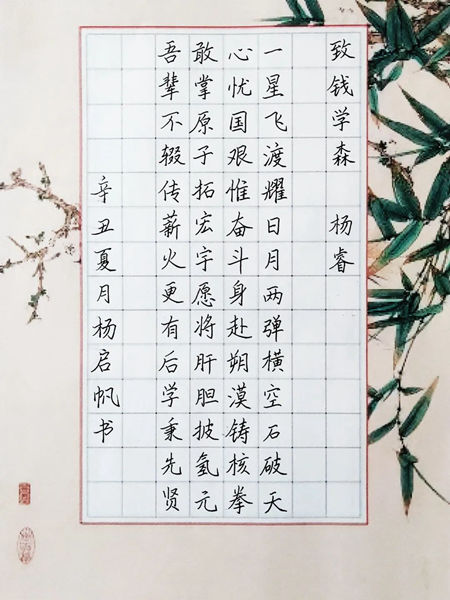 致钱学森 杨睿
一星飞渡耀日月两弹横空石破天
心忧国艰惟奋斗身赴朔漠铸核拳
敢掌原子拓宏宇愿将肝胆披氢元
吾辈不辍传薪火更有后学秉先贤
辛丑夏月杨启帆书